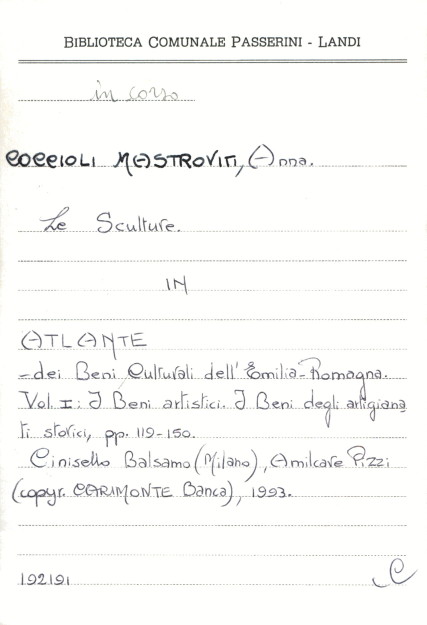 BIBLIOTECA COMUNALE PASSERINI - LANDI
in corso
COCCIOLI MASTROVITI, Anna.
Le Sculture.
IN
ATLANTE
- dei Beni Culturali dell'Emilia-Romagna.
Vol. I: I Beni artistici. I Beni degli artigiana
ti storici, pp. 119-150.
Cinisello Balsamo (Milano), Amilcare Pizzi
(copyr. CARIMONTE Banca), 1993.
192191
C